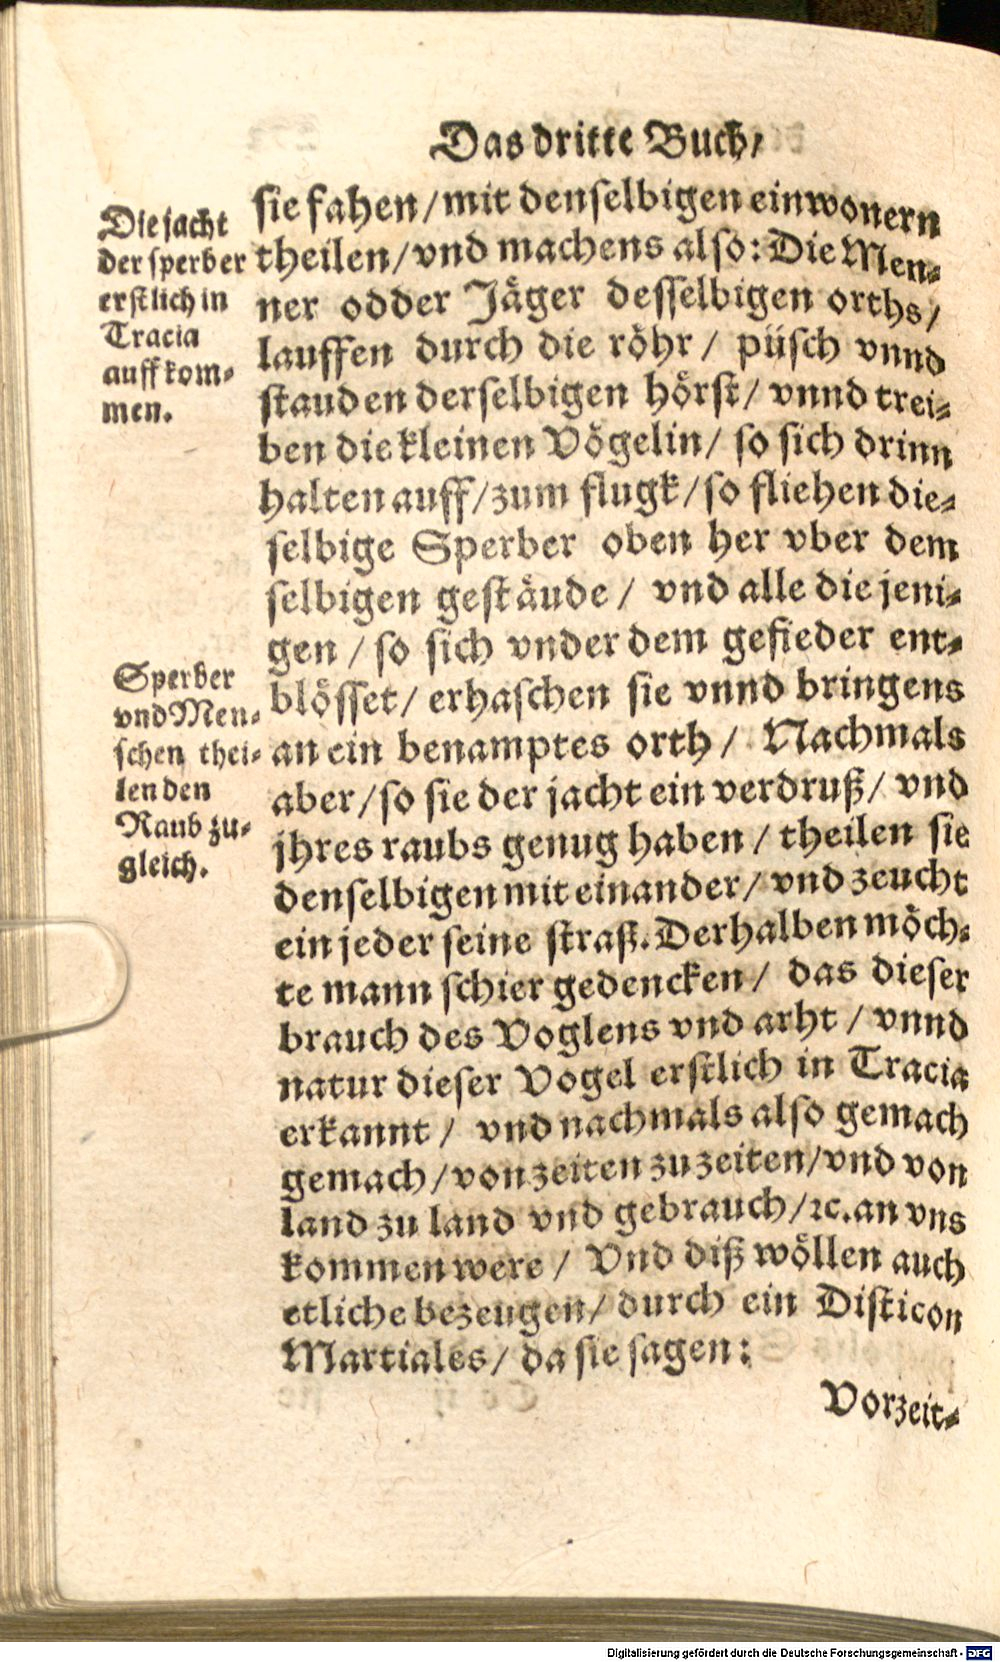 Das dritte Buch/
Die jacht
der sperber
erstlich in
Tracia
auff kom-
men.
sie fahen/mit denselbigen einwonern
theilen/vnd machens also: Die Men-
ner odder Jäger desselbigen orths/
lauffen durch die röhr/ püsch vnnd
stauden derselbigen hörst/ vnnd trei-
ben die kleinen Vögelin/ so sich drinn
halten auff/zum flugk/so fliehen die-
selbige Sperber oben her vber dem
selbigen gestäude/ vnd alle die jeni-
gen/ so sich vnder dem gefieder ent-
blösset/ erhaschen sie vnnd bringens
an ein benamptes orth/ Nachmals
aber/so sie der jacht ein verdruß/ vnd
jhres raubs genug haben/ theilen sie
denselbigen mit einander/ vnd zeucht
ein jeder seine straß. Derhalben möch-
te mann schier gedencken/ das dieser
brauch des Voglens vnd arht/ vnnd
natur dieser Vogel erstlich in Tracia
erkannt/ vnd nachmals also gemach
gemach/von zeiten zu zeiten/vnd von
land zu land vnd gebrauch/ꝛc.an vns
kommen were/ Vnd diß wöllen auch
etliche bezeugen/ durch ein Disticon
Martiales/ da sie sagen:
Sperber
vnd Men-
schen thei-
len den
Raub zu-
gleich.
Vorzeit-
Digitalisierung gefördert durch die Deutsche Forschungsgemeinschaft - DFG